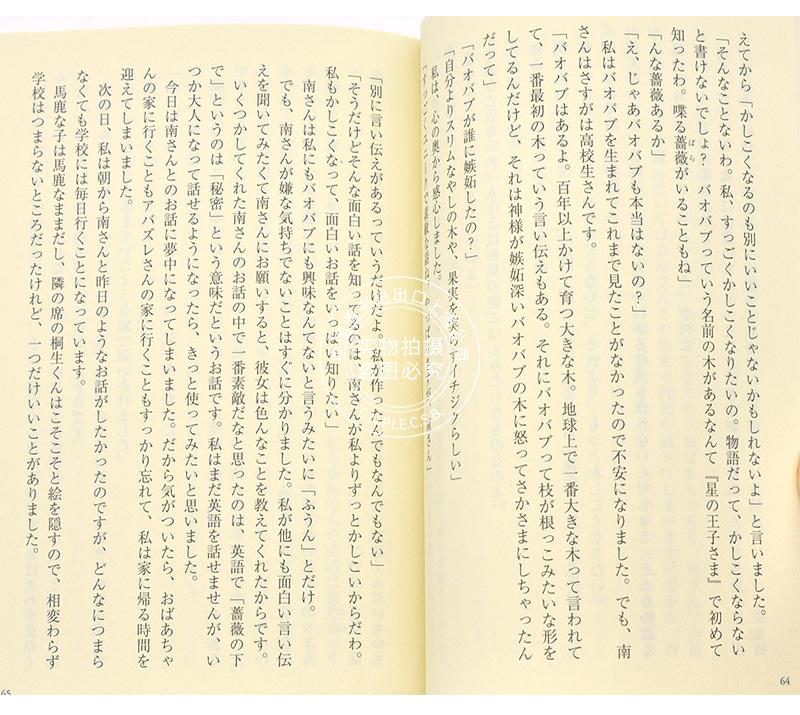 えてから「かしこくなるのも別にいいことじゃないかもしれないよ」と言いました。
「そんなことないわ。私、すっごくかしこくなりたいの。物語だって、かしこくならない
と書けないでしょ？　バオバブっていう名前の木があるなんて『星の王子さま』で初めて
知ったわ。喋る薔薇がいることもね」
ばら
「んな薔薇あるか」
「え、じゃあバオバブも本当はないの？」
私はバオバブを生まれてこれまで見たことがなかったので不安になりました。でも、南
さんはさすがは高校生さんです。
「バオバブはあるよ。百年以上かけて育つ大きな木。地球上で一番大きな木って言われて
て、一番最初の木っていう言い伝えもある。それにバオバブって枝が根っこみたいな形を
してるんだけど、それは神様が嫉妬深いバオバブの木に怒ってさかさまにしちゃったん
だって」
「バオバブが誰に嫉妬したの？」
「自分よりスリムなやしの木や、果実を実らすイチジクらしい」
私は、心の奥から感心しました。
64
「別に言い伝えがあるっていうだけだよ。私が作ったんでもなんでもない」
「そうだけどそんな面白い話を知ってるのは、南さんが私よりずっとかしこいからだわ。
私もかしこくなって、面白いお話をいっぱい知りたい」
南さんは私にもバオバブにも興味なんてないと言うみたいに「ふうん」とだけ。
でも、南さんが嫌な気持ちでないことはすぐに分かりました。私が他にも面白い言い伝
えを聞いてみたくて南さんにお願いすると、彼女は色んなことを教えてくれたからです。
いくつかしてくれた南さんのお話の中で一番素敵だなと思ったのは、英語で「薔薇の下
で」というのは「秘密」という意味だというお話です。私はまだ英語を話せませんが、い
つか大人になって話せるようになったら、きっと使ってみたいと思いました。
今日は南さんとのお話に夢中になってしまいました。だから気がついたら、おばあちゃ
んの家に行くこともアバズレさんの家に行くこともすっかり忘れて、私は家に帰る時間を
迎えてしまいました。
次の日、私は朝から南さんと昨日のようなお話がしたかったのですが、どんなにつまら
なくても学校には毎日行くことになっています。
馬鹿な子は馬鹿なままだし、隣の席の桐生くんはこそこそと絵を隠すので、相変わらず
学校はつまらないところだったけれど、一つだけいいことがありました。
65
实物拍摄
盗图必究